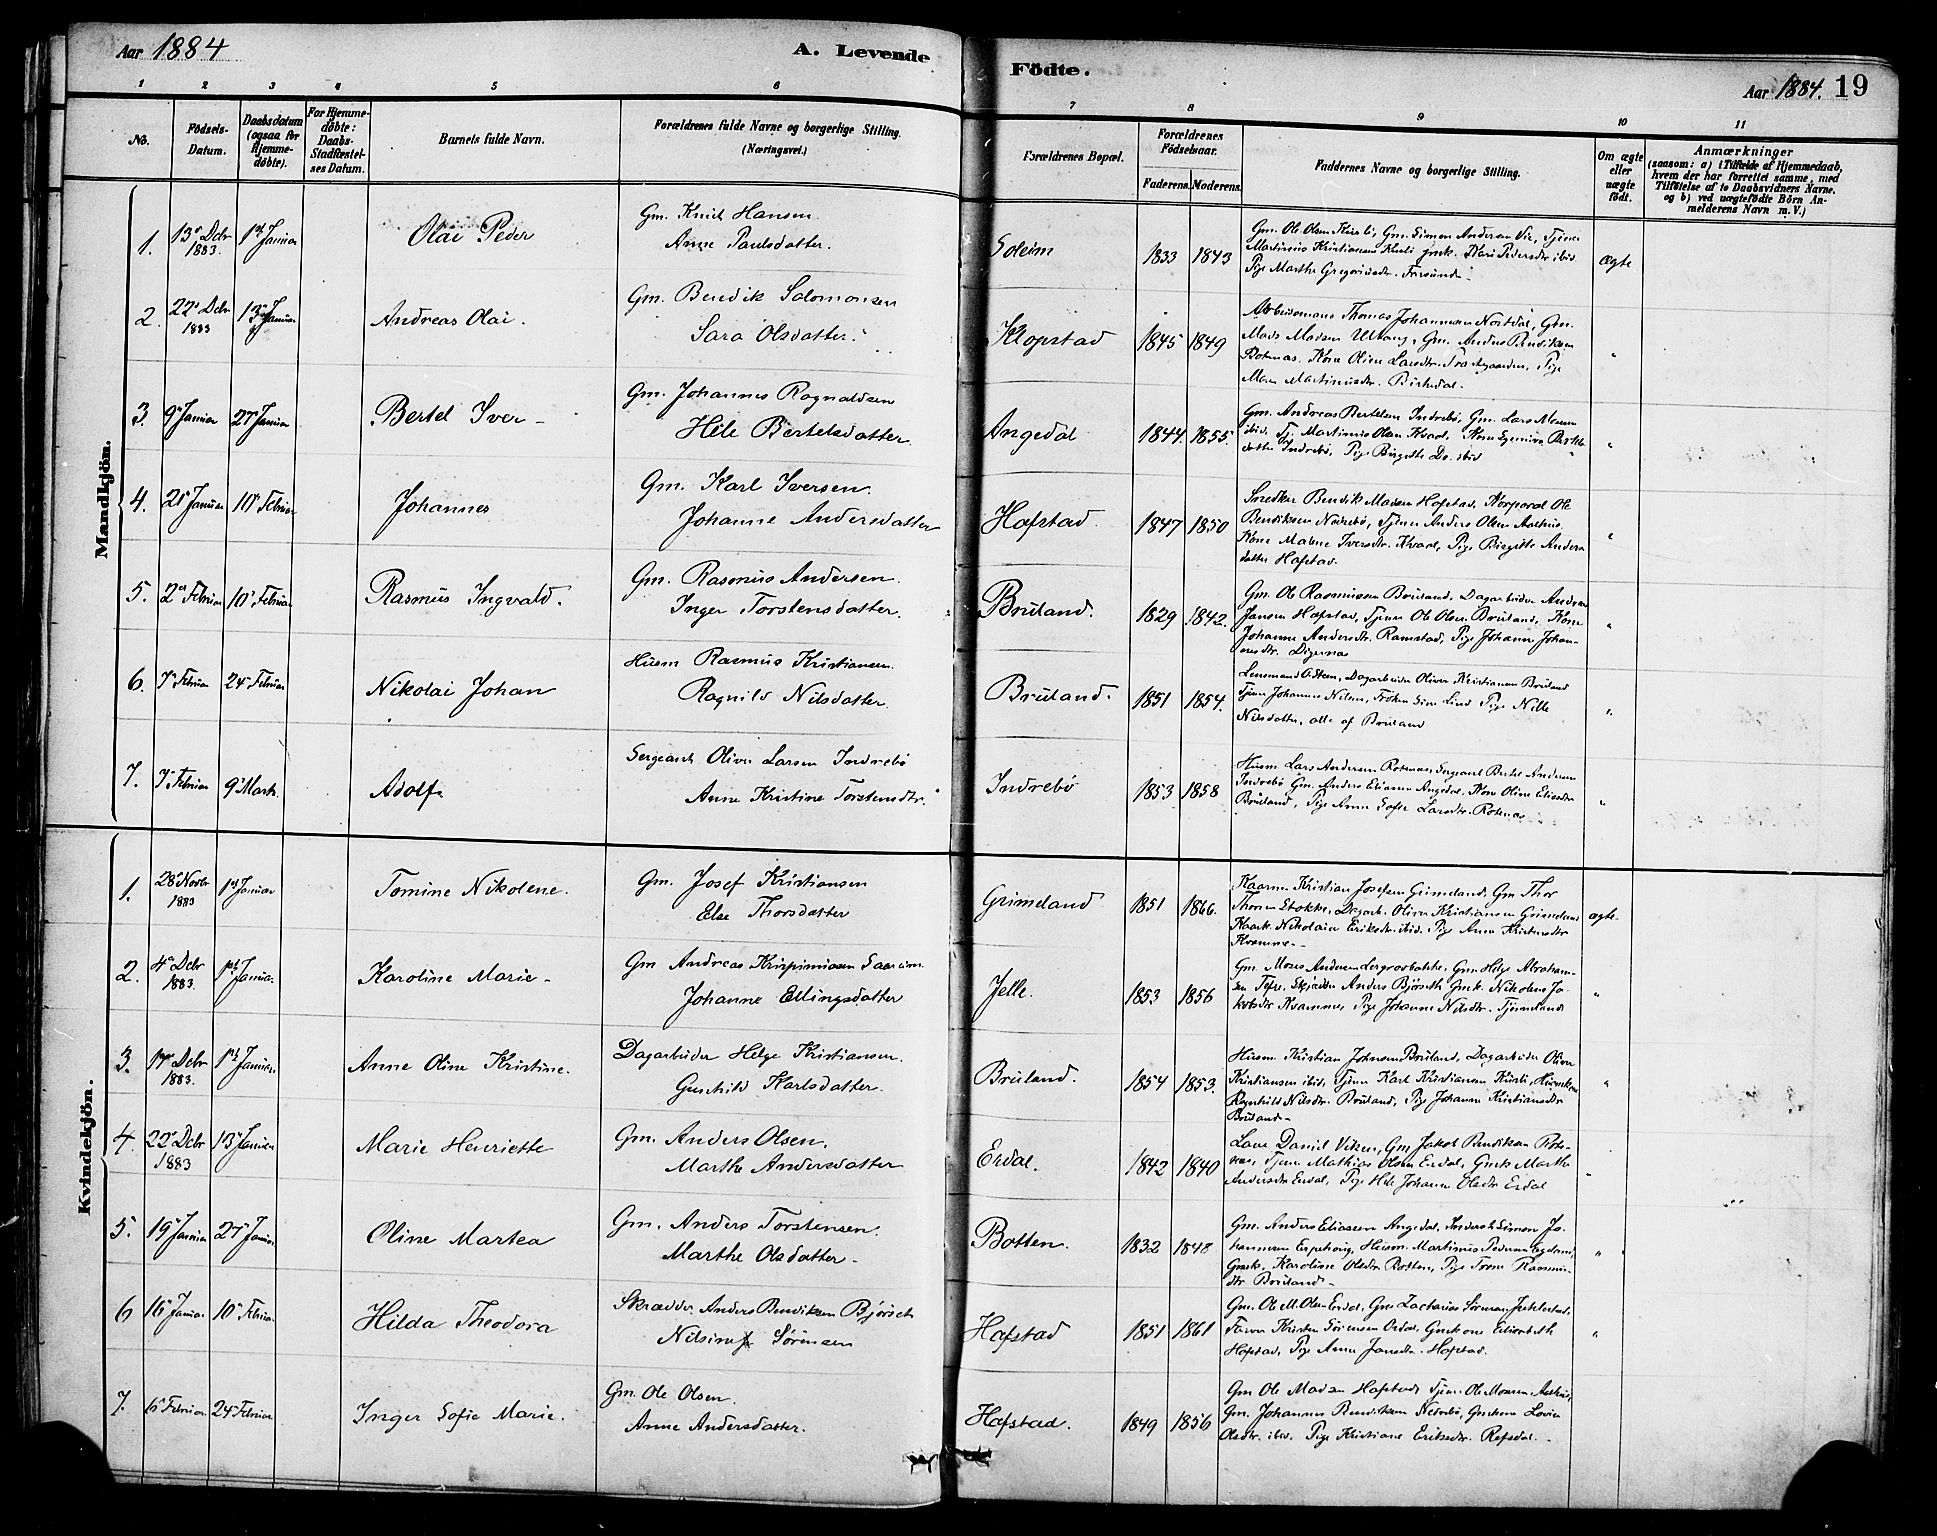 Aar 1884
A. Levende
Födte.
Aar 1884.
19
1 2 3 4 5 6
7 8 9 10 11
No.
Födsels-Datum.
Daabsdatum (ogsaa for Hjemme-döbte).
For Hjemme-döbte: Daabs-Stadfæstel-ses Datum.
Barnets fulde Navn.
Forældrenes fulde Navne og borgerlige Stilling.
(Næringsvei.)
Forældrenes Bopæl.
Forældrenes Födselsaar.
Faderens. Moderens.
Faddernes Navne og borgerlige Stilling.
Om ægte eller uægte födt.
Anmærkninger
(saasom: a) i Tilfælde af Hjemmedaab,
hvem der har forrettet samme, med
Tilföielse af to Daabsvidners Navne.
og b) ved uægtefödte Börn An-
melderens Navn m. V.)
Mandkjön.
1. 13de Debr 1883. 1ste Januar Olai Peder
Gm. Knud Hansen.
Anne Paulsdatter.
Soleim 1833 1843
Gm. Ole Olsen, Gm. Simon Andersen Vie, Tjener
Martinus Kristiansen, Kari Pedersdtr ibid
Pige Marthe Gregoriusdtr. Farsund.
Ægte
2. 22de Debr 1883 13de Januar Andreas Olai.
Gm. Bendik Salomonsen
Sara Olsdatter.
Klopstad 1845 1849
Arbeidsmand Thomas Johannesen Nordal, Gm.
Mads Madsen, Gm. Anders Bendiksen
Rotenes. Kone Oline Larsdtr., Pige
Maren Martinusdtr. Birkedal.
"
3. 9de Januar 27de Januar Bertel Iver
Gm. Johannes Ragnaldsen
Hele Bertelsdatter
Angedal 1844. 1855.
Gm. Andreas Bertelsen Indrebö, Gm. Lars
ibid. Tj. Martinus Olsen Kvaal, Kone
datter Indrebö, Pige Birgitte Do. ibid
"
4. 21de Januar 10de Februar Johannes
Gm. Karl Iversen.
Johanne Andersdatter
Hafstad. 1847 1850
Snedker Bendik Madsen Hafstad, Korporal Ole
Bendiksen Nedrebö, Tjener Anders Olsen Aashus.
Kone Malene Iversdtr. Kvaal, Pige Birgitte Anders
datter Hafstad.
"
5. 2den Februar 10de Februar Rasmus Ingvald.
Gm. Rasmus Andersen.
Inger Torstensdatter.
Bruland. 1829 1842.
Gm. Ole Rasmussen Bruland, Dagarbeider Anders
Jansen Hafstad, Tjener Ole Olsen Bruland, Kone
Johanne Andersdtr. Ramstad, Pige Johanne Johan-
nesdtr. Digernes
"
6. 7de Februar 24de Februar Nikolai Johan
Husm Rasmus Kristiansen.
Ragnild Nilsdatter.
Bruland. 1851 1854.
Lensmand, Dagarbeider Oliver Kristiansen Bruland
Tjener Johannes Nilsen, Fröken Sine Lind Pige Nille
Nilsdatter, alle af Bruland
"
7. 7de Februar 9de Marts. Adolf.
Sergeant Oliver Larsen Indrebö
Anne Kristine Torstensdtr.
Indrebö 1853 1858
Husm Lars Andersen Rotenes, Sergeant Bertel Andersen
Indrebö Gm. Anders Eliassen Angedal, Kone Oline Eliasdtr
Bruland, Pige Anne Sofie Larsdtr. Rotenes
"
Kvindekjön.
1. 28de Novbr 1883 1ste Januar Tomine Nikolene.
Gm. Josef Kristiansen
Else Thorsdatter
Grimeland 1851 1866.
Kaarm. Kristian Josefsen Grimeland, Gm Thor
Thorsen Stokke, Dagarb. Oliver Kristiansen Grimeland
Kaark. Nikolaia Eriksdtr ibid. Pige Anne Kristensdtr
Kvamme.
ægte.
2. 4de Debr 1883. 1ste Januar. Karoline Marie
Gm Andreas Krispiniusen
Johanne Ellingsdatter
Jelle. 1853 1856
Gm. Moses Andersen, Gm Helge Abraham-
sen, Anders Björseth Gmk. Nikoline Ja-
kobsdtr Kvamme, Pige Johanne Nilsdtr.
"
3. 17de Debr 1883. 1ste Januar. Anne Oline Kristine.
Dagarbeider Helge Kristiansen.
Gunhild Karlsdatter.
Bruland. 1854 1853.
Husm. Kristian Johnsen Bruland, Dagarbeider Oliver
Kristiansen ibid, Tjener Karl Kristiansen, Huusmkone
Ragnhild Nilsdtr. Bruland, Pige Johanne Kristiansdtr
Bruland
"
4. 22de Debr 1883 13de Januar Marie Henriette
Gm. Anders Olsen.
Marthe Andersdatter
Erdal. 1842 1840
Lars Daniel, Gm Jakob Bendiksen Rote-
nes, Tjener Mathias Olsen Erdal, Gmk Marthe
Andersdtr Erdal, Pige Hele Johanne Olsdtr Erdal
"
5. 19de Januar 27de Januar Oline Martea
Gm. Anders Torstensen.
Marthe Olsdatter
Botten. 1832 1848
Gm. Anders Eliassen Angedal, Inderst Simon Jo-
hannesen Erpehoug, Husm. Martinus Pedersen,
Gmk. Karoline Olsdtr Botten, Pige Trine Rasmus-
dtr. Bruland
"
6 16de Januar. 10de Februar. Hilda Theodora
Skrædder Anders Bendiksen Björset
Nilsine Sørensen
Hafstad 1851 1861
Gm. Ole M. Olsen Erdal, Gm Zacharias Sörensen,
Farver Kristen Sörensen, Gmkone Elisabeth
Hafstad, Pige Anne Jansdtr. Hafstad.
"
7. 6te Februar 24de Februar. Inger Sofie Marie.
Gm. Ole Olsen.
Anne Andersdatter.
Hafstad. 1849 1856
Gm Ole Madsen Hafstad, Tjener Ole Monsen Aashus,
Gm. Johannes Bendiksen Nedrebö, Gmkone Lovise
Olsdtr. ibid. Pige Kristiane Eriksdtr. Refsdal.